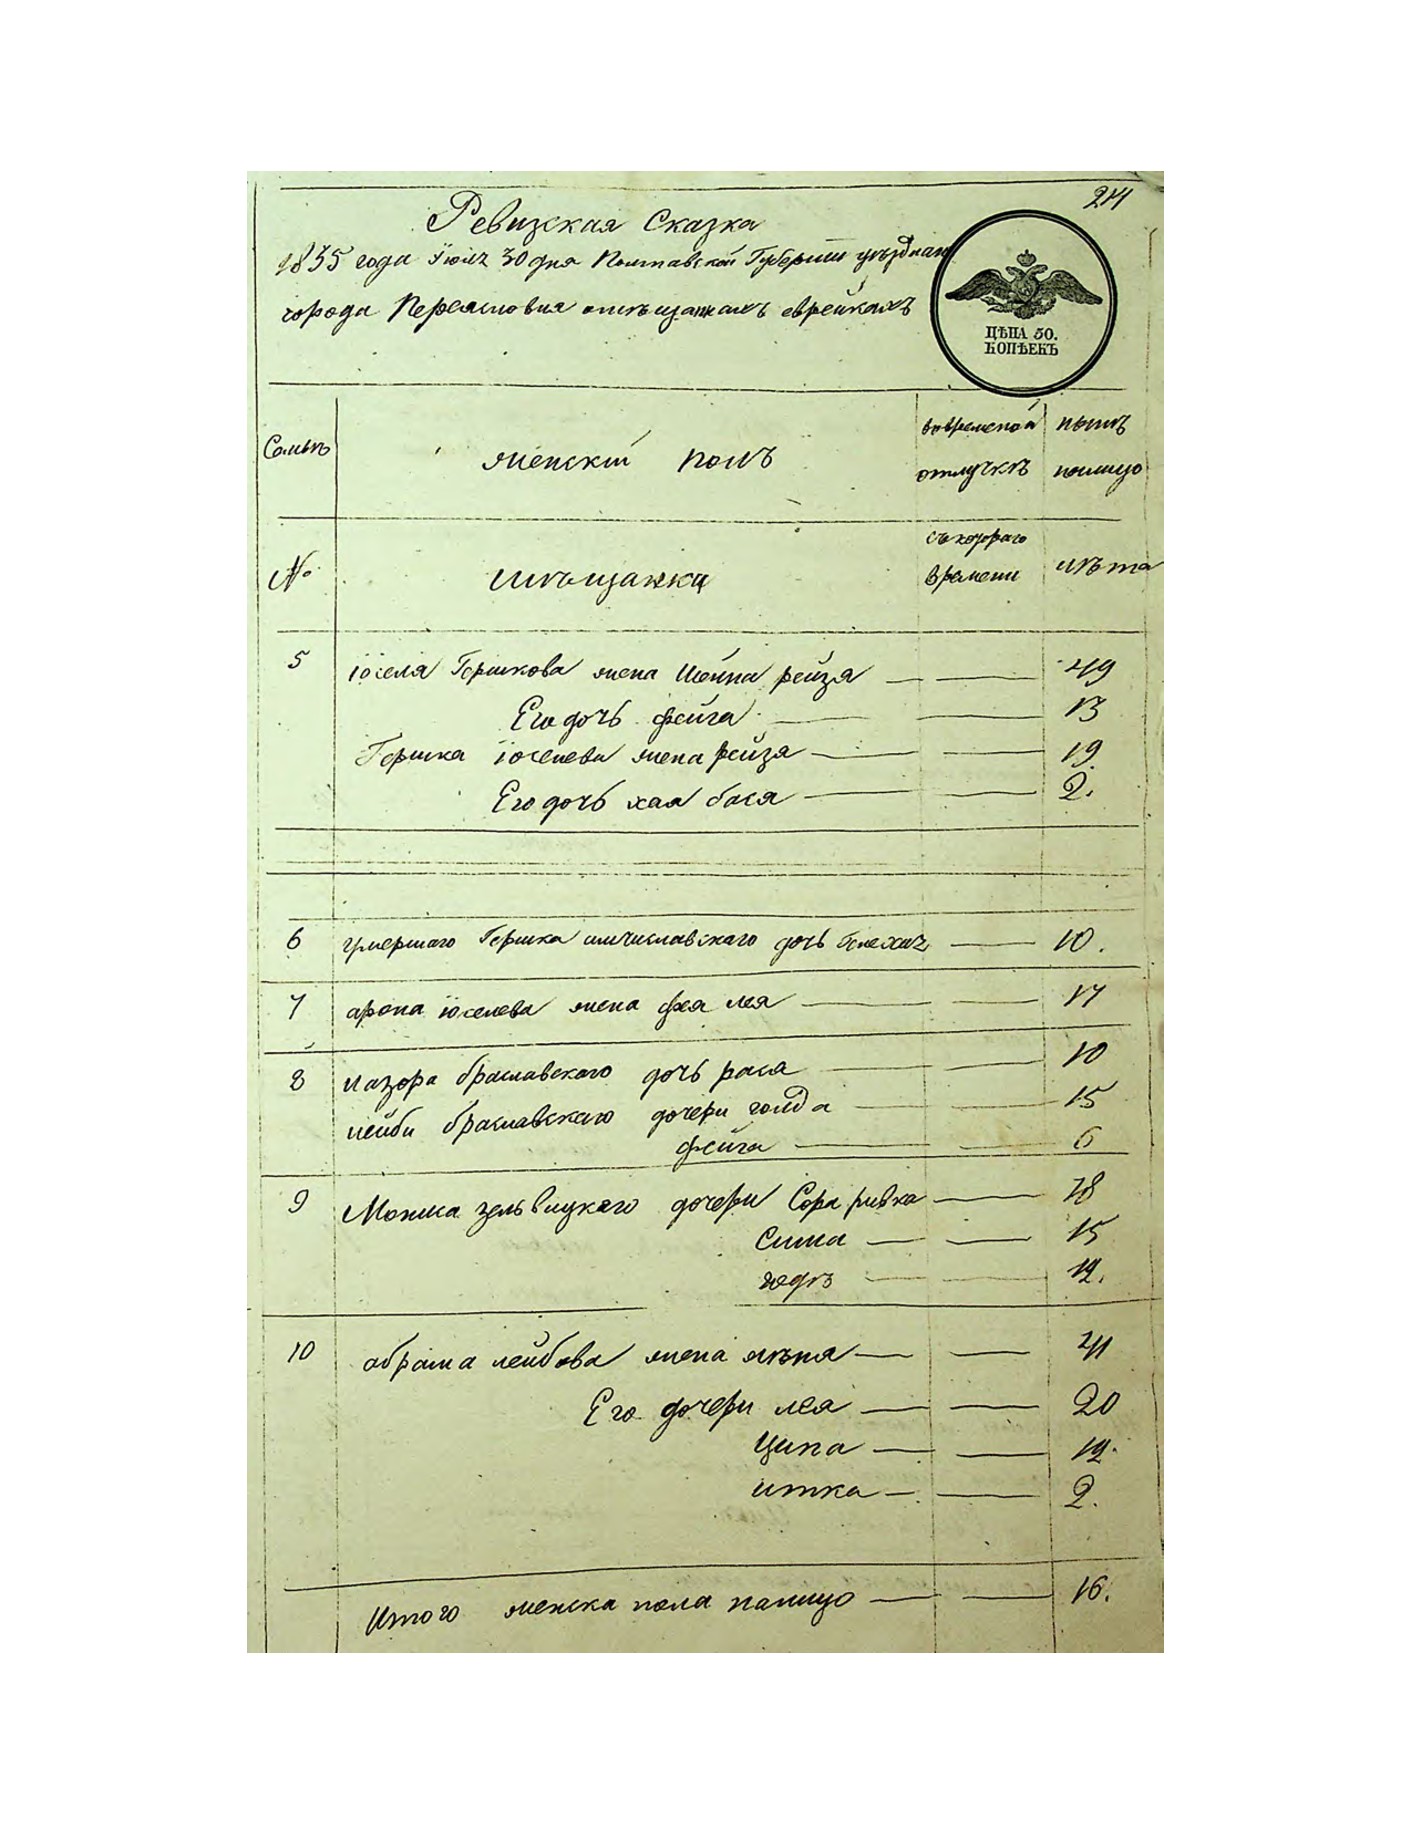 Ревизская Сказка
1835 года Іюля 30 дня Полтавской Губерніи уѣзднаго
города Переяславля о мѣщанкахъ еврейкахъ
ЦѢНА 50.
КОПѢЕКЪ
Семьи
женскій полъ
вовременой
отлучкѣ
нынѣ
налицо
№
мѣщанки
съкотораго
времени
лѣта
5 іоселя Гершкова жена Шейна рейзя 49
Его дочь фейга 13
Гершка іоселева жена рейзя 19
Его дочь хая бася 2.
6 умершаго Гершка дочь 10.
7 арона іоселева жена лея 17
8 лазора браславскаго дочь рася 10
лейби браславскаго дочери голда 15
фейга 6
9 Мошка зельвицкаго дочери Сора ривка 18
Сима 15
12.
10 абрама лейбова жена 41
Его дочери лея 20
Ципа 12.
итка 2.
Итого женска пола налицо 16.